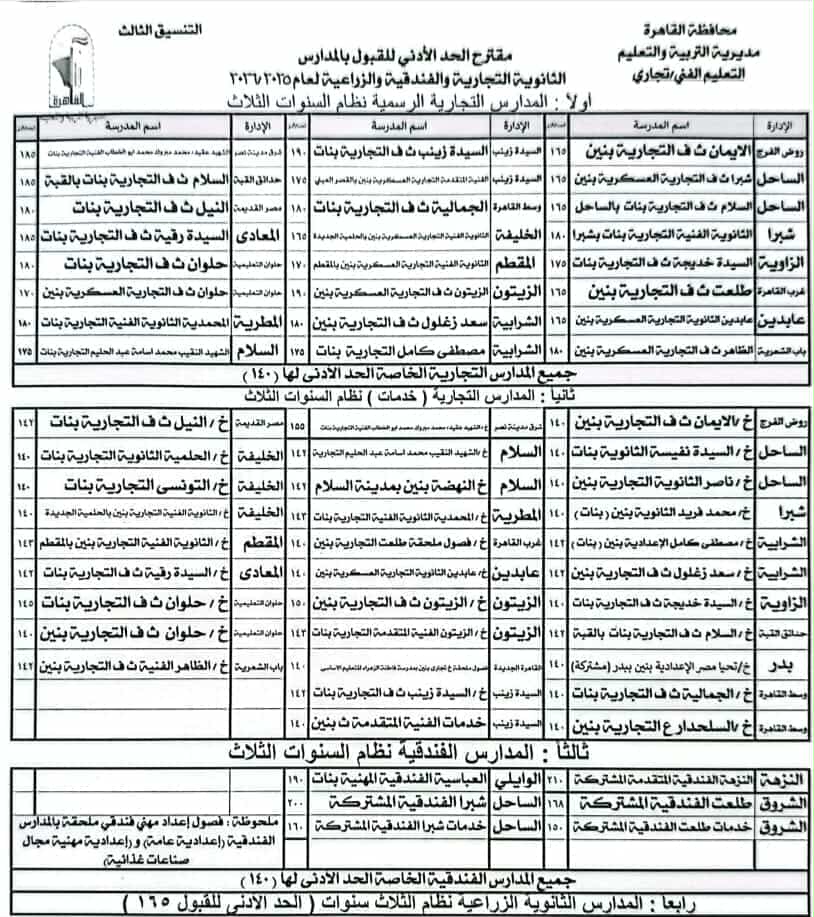 محافظة القاهرة
مديرية التربية والتعليم
التعليم الفني/تجاري
التنسيق الثالث
القاهرة
مقترح الحد الأدني للقبول بالمدارس
الثانوية التجارية والفندقية والزراعية لعام ٢٠٢٦/٢٠٢٥
أولاً : المدارس التجارية الرسمية نظام السنوات الثلاث
الإدارة اسم المدرسة الإدارة اسم المدرسة الإدارة اسم المدرسة
روض الفرج الايمان ث ف التجارية بنين ١٦٥ السيدة زينب السيدة زينب ث ف التجارية بنات ١٩٠ شرق مدينة نصر الشهيد عقيد/ محمد مبروك محمد ابو الخطاب الفنية التجارية بنات ١٨٥
الساحل شبرا ث ف التجارية العسكرية بنين ١٦٥ السيدة زينب الفنية المتقدمة التجارية العسكرية بنين بالقصر العيني ١٧٥ حدائق القبة السلام ث ف التجارية بنات بالقبة ١٨٥
الساحل السلام ث ف التجارية بنات بالساحل ١٦٥ وسط القاهرة الجمالية ث ف التجارية بنات ١٨٠ مصر القديمة النيل ث ف التجارية بنات ١٨٠
شبرا الثانوية الفنية التجارية بنات بشبرا ١٨٠ الخليفة الثانوية الفنية التجارية العسكرية بنين بالحلمية الجديدة ١٦٥ المعادى السيدة رقية ث ف التجارية بنات ١٨٥
الزاوية السيدة خديجة ث ف التجارية بنات ١٧٥ المقطم الثانوية الفنية التجارية العسكرية بنين بالمقطم ١٧٠ حلوان التعليمية حلوان ث ف التجارية بنات ١٨٠
غرب القاهرة طلعت ث ف التجارية بنين ١٦٥ الزيتون الزيتون ث ف التجارية العسكرية بنين ١٩٠ حلوان التعليمية حلوان ث ف التجارية العسكرية بنين ١٧٠
عابدين عابدين الثانوية التجارية العسكرية بنين ١٦٥ الشرابية سعد زغلول ث ف التجارية بنين ١٨٠ المطرية المحمدية الثانوية الفنية التجارية بنات ١٨٠
باب الشعرية الظاهر ث ف التجارية العسكرية بنين ١٨٠ الشرابية مصطفى كامل التجارية بنات ١٧٥ السلام الشهيد النقيب محمد اسامة عبد الحليم التجارية بنات ١٧٥
جميع المدارس التجارية الخاصة الحد الادنى لها ( ١٤٠ )
ثانيا : المدارس التجارية ( خدمات ) نظام السنوات الثلاث
روض الفرج خ /الايمان ث ف التجارية بنين ١٤٠ شرق مدينة نصر خ / الشهيد عقيد / محمد مبروك محمد ابو الخطاب الفنية التجارية بنات ١٥٥ مصر القديمة خ / النيل ث ف التجارية بنات ١٤٢
الساحل خ / السيدة نفيسة الثانوية بنات ١٤٠ السلام خ /الشهيد النقيب محمد اسامة عبد الحليم التجارية ١٤٢ الخليفة خ / الحلمية الثانوية التجارية بنات ١٤٠
الساحل خ / ناصر الثانوية التجارية بنين ١٤٠ السلام خ النهضة بنين بمدينة السلام ١٤٢ الخليفة خ / التونسى التجارية بنات ١٤٠
شبرا خ / محمد فريد الثانوية بنين ( بنات ) ١٤٠ المطرية خ / المحمدية الثانوية الفنية التجارية بنات ١٤٣ الخليفة خ / الثانوية الفنية التجارية بنين بالحلمية الجديدة ١٤٠
الشرابية خ / مصطفى كامل الإعدادية بنين ( بنات ) ١٤٢ غرب القاهرة خ / فصول ملحقة طلعت التجارية بنين ١٤٠ المقطم خ / الثانوية الفنية التجارية بنين بالمقطم ١٤٣
الشرابية خ / سعد زغلول ث ف التجارية بنين ١٤٢ عابدين خ / عابدين الثانوية التجارية العسكرية بنين ١٤٠ المعادى خ / السيدة رقية ث ف التجارية بنات ١٤٢
الزاوية خ / السيدة خديجة ث ف التجارية بنات ١٤٠ الزيتون خ / الزيتون ث ف التجارية بنين ١٥٠ حلوان التعليمية خ / حلوان ث ف التجارية بنات ١٤٥
حدائق القبة خ / السلام ث ف التجارية بنات بالقبة ١٤٢ الزيتون خ / الزيتون الفنية المتقدمة التجارية بنات ١٤٣ حلوان التعليمية خ / حلوان ث ف التجارية بنين ١٤٠
بدر خ /تحيا مصر الإعدادية بنين ببدر (مشتركة) ١٤٠ القاهرة الجديدة فصول ملحقة خ تجارى بنين بمدرسة فاطمة الزهراء للتعليم الاساسى ١٤٠ باب الشعرية خ / الظاهر الفنية ث ف التجارية بنين ١٤٢
وسط القاهرة خ / الجمالية ث ف التجارية بنات ١٤٠ السيدة زينب خ / السيدة زينب ث ف التجارية بنات ١٤٢
وسط القاهرة خ /السلحدار ع التجارية بنين ١٤٠ السيدة زينب خدمات الفنية المتقدمة ث بنين ١٤٠
ثالثا : المدارس الفندقية نظام السنوات الثلاث
النزهة النزهة الفندقية المتقدمة المشتركة ٢١٠ الوايلي العباسية الفندقية المهنية بنات ١٩٠
الشروق طلعت الفندقية المشتركة ١٦٨ الساحل شبرا الفندقية المشتركة ٢٠٠
الشروق خدمات طلعت الفندقية المشتركة ١٥٠ الساحل خدمات شبرا الفندقية المشتركة ١٦٠
ملحوظة : فصول إعداد مهني فندقي ملحقة بالمدارس
الفندقية (إعدادية عامة) و (إعدادية مهنية مجال
صناعات غذائية)
جميع المدارس الفندقية الخاصة الحد الادنى لها (١٤٠)
رابعا : المدارس الثانوية الزراعية نظام الثلاث سنوات ( الحد الأدنى للقبول ١٦٥ )